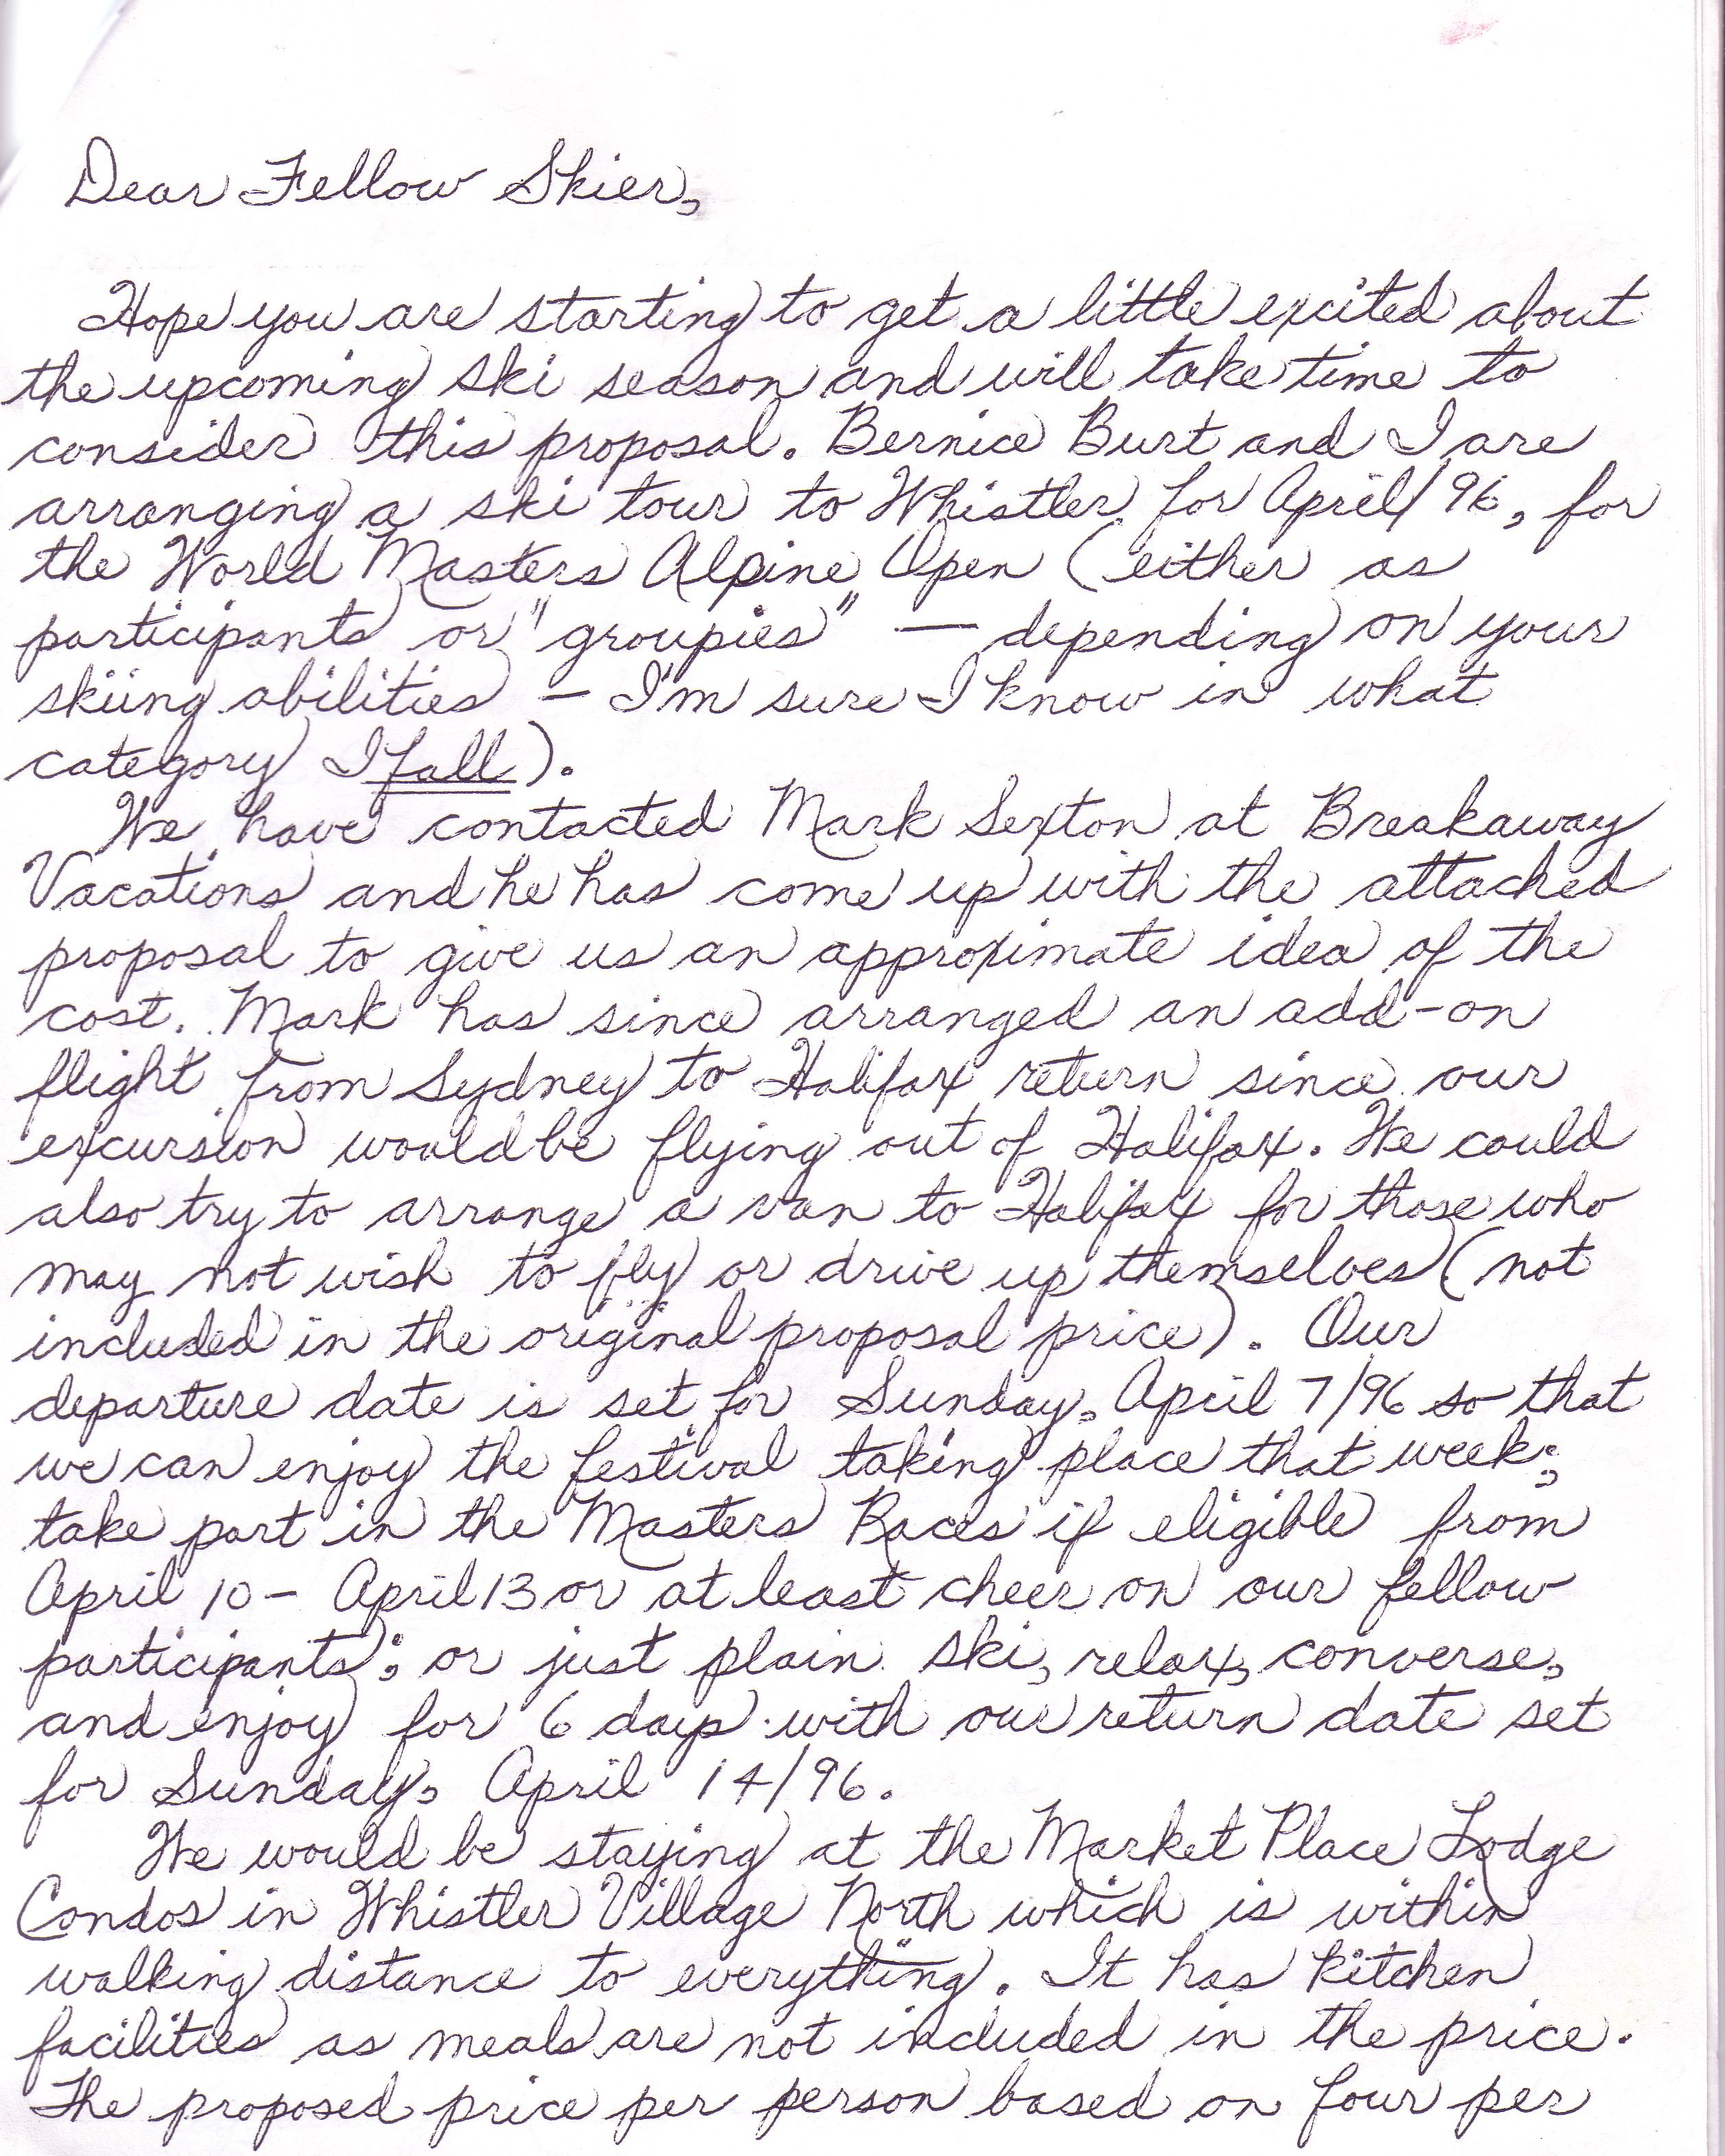 Dear Fellow Skier,
Hope you are starting to get a little excited about
the upcoming ski season and will take time to
consider this proposal. Bernice Burt and I are
arranging a ski tour to Whistler for April/96, for
the World Masters Alpine Open (either as
participants or "groupies" — depending on your
skiing abilities – I'm sure I know in what
category I fall).
We have contacted Mark Sexton at Breakaway
Vacations and he has come up with the attached
proposal to give us an approximate idea of the
cost. Mark has since arranged an add-on
flight from Sydney to Halifax return since our
excursion would be flying out of Halifax. We could
also try to arrange a van to Halifax for those who
may not wish to fly or drive up themselves (not
included in the original proposal price). Our
departure date is set for Sunday, April 7/96 so that
we can enjoy the festival taking place that week;
take part in the Masters Races if eligible from
April 10 – April 13 or at least cheer on our fellow
participants; or just plain ski, relax, converse,
and enjoy for 6 days with our return date set
for Sunday, April 14/96.
We would be staying at the Market Place Lodge
Condos in Whistler Village North which is within
walking distance to everything. It has kitchen
facilities as meals are not included in the price.
The proposed price per person based on four per